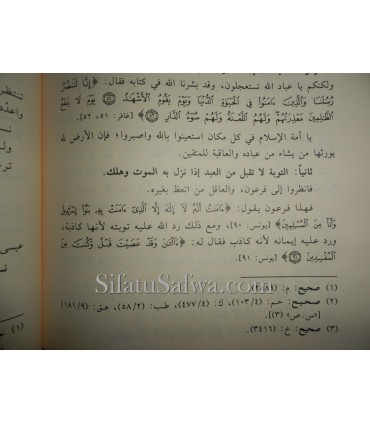 ولكنكم يا عباد الله تستعجلون، وقد بشرنا الله في كتابه فقال: ﴿إِنَّا لَنَنصُرُ
رُسُلَنَا وَالَّذِينَ ءَامَنُوا فِي الْحَيَوٰةِ الدُّنْيَا وَيَوْمَ يَقُومُ الْأَشْهَٰدُ ۝ يَوْمَ لَا يَنفَعُ
الظَّٰلِمِينَ مَعْذِرَتُهُمْ وَلَهُمُ اللَّعْنَةُ وَلَهُمْ سُوءُ الدَّارِ ۝﴾ [غافر: ٥١، ٥٢].
يا أمة الإسلام في كل مكان استعينوا بالله واصبروا؛ فإن الأرض لله
يورثها من يشاء من عباده والعاقبة للمتقين.
ثانياً: التوبة لا تقبل من العبد إذا نزل به الموت وهلك.
فانظروا إلى فرعون، والعاقل من اتعظ بغيره.
فهذا فرعون يقول: ﴿ءَامَنتُ أَنَّهُ لَا إِلَٰهَ إِلَّا الَّذِي ءَامَنَتْ بِهِ بَنُوا إِسْرَٰءِيلَ
وَأَنَا مِنَ الْمُسْلِمِينَ﴾ [يونس: ٩٠]، ومع ذلك رد الله عليه توبته لأنها كاذبة،
ورد عليه إيمانه لأنه كاذب فقال له: ﴿ءَآلْـَٰنَ وَقَدْ عَصَيْتَ قَبْلُ وَكُنتَ مِنَ
الْمُفْسِدِينَ ۝﴾ [يونس: ٩١].
SilatuSafwa.com
(١) صحيح: م:
(٢) صحيح: حم: (١٠٣/٤)، ك: (٤٧٧/٤)، طب: (٥٨/٢)، هق: (١٨١/٩)
[«س.ص» (٣)].
(٣) صحيح: خ: (٣٤١٦).
(١)